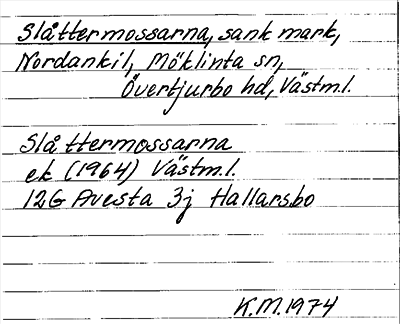 Slåttermossarna, sank mark,
Nordankil, Möklinta sn,
Övertjurbo hd, Västm.l.
Slåttermossarna
ek (1964) Västm.l.
12G Avesta 3j Hallarsbo
K.M. 1974